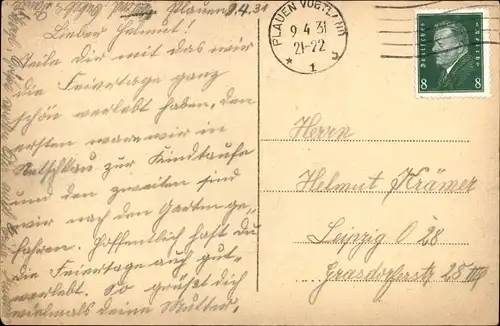 Plauen 9.4.31
Lieber Helmut!
Teile Dir mit das wir
die Feiertage ganz
schön verlebt haben, den
ersten waren wir in
Netschkau zur Kindtaufe
und den zweiten sind
wir nach den Garten ge-
fahren. Hoffentlich hast du
die Feiertage auch gut
verlebt. So grüßt dich
vielmals deine Mutter.
PLAUEN VOGTLAND
9 4 31
21-22
* 1
Deutsches Reich
8 8
Herrn
Helmut Krämer
Leipzig O 28
Grasdorferstr 25 III